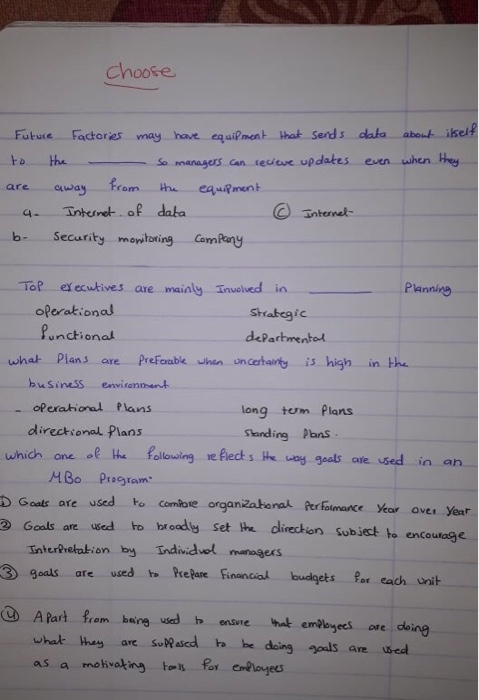 choose
Future Factories may have equipment that sends data about itself
to the ______ so managers can recieve updates even when they
are away from the equipment
a- Internet of data © Internet
b- Security monitoring Company
Top executives are mainly Involved in ______ Planning
operational strategic
functional departmental
what Plans are Preferable when uncertainty is high in the
business environment
- operational Plans long term Plans
directional Plans standing Plans.
which one of the following reflects the way goals are used in an
MBO Program.
① Goals are used to compare organizational Performance Year over Year
② Goals are used to broadly set the direction subject to encourage
Interpretation by Individual managers
③ goals are used to Prepare Financial budgets for each unit
④ Apart from being used to ensure that employees are doing
what they are supposed to be doing goals are used
as a motivating tools for employees